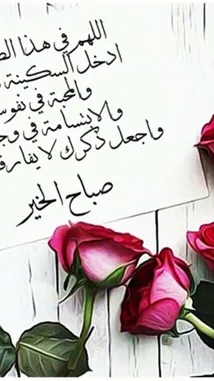 اللهم في هذا
ادخل السكينة
والمحبة في
والابتسامة في
واجعل ذكرك لا
صباح الخير